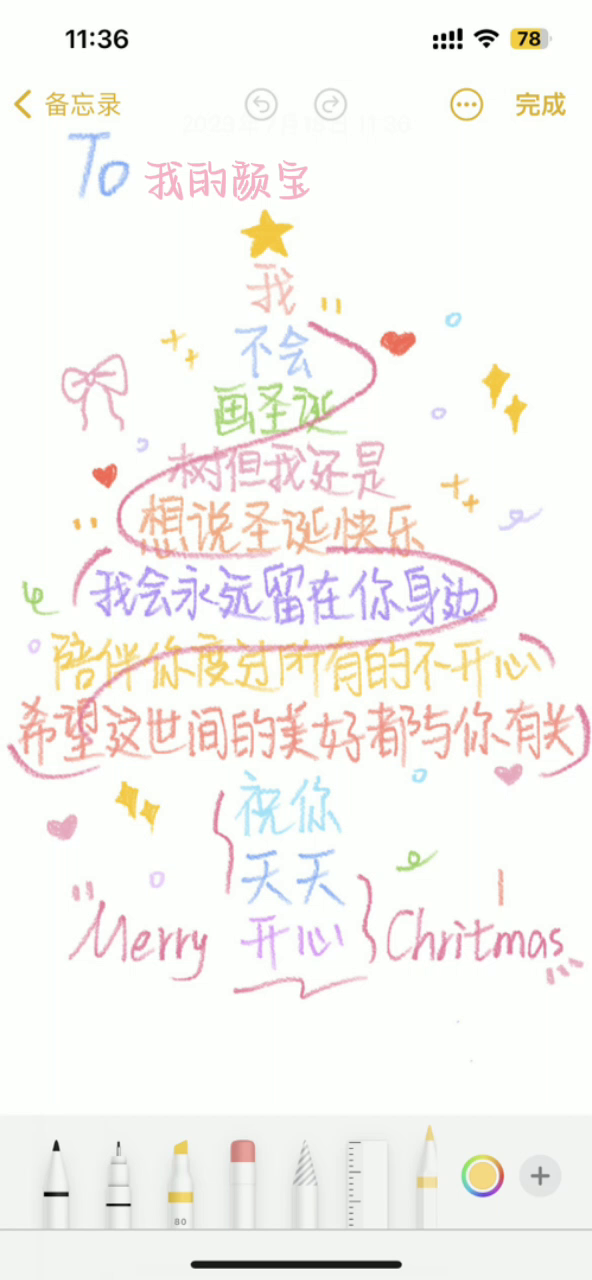 11:36
78
备忘录
完成
To 我的颜宝
我
不会
画圣诞
树但我还是
想说圣诞快乐
我会永远留在你身边
陪伴你度过所有的不开心
希望这世间的美好都与你有关
祝你
天天
Merry 开心 Chritmas
80